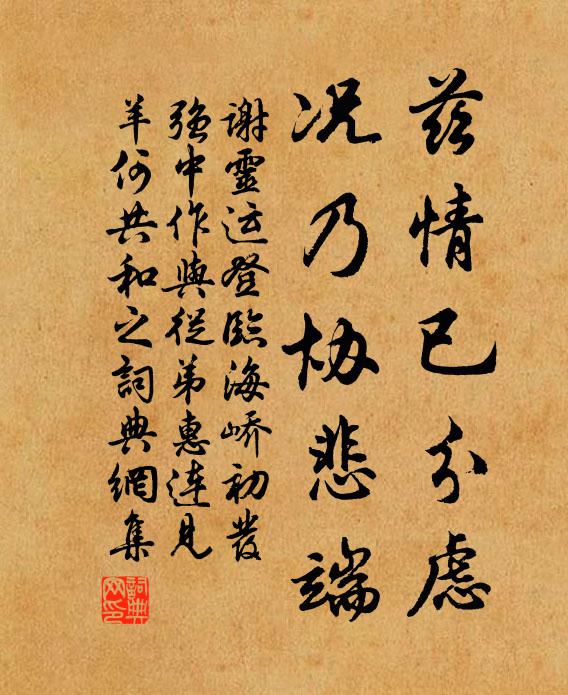 茲情已分慮
况乃协悲端
謝靈运登臨海嶠初發
强中作與從弟惠連見
羊何共和之詞典網集
詞典網印